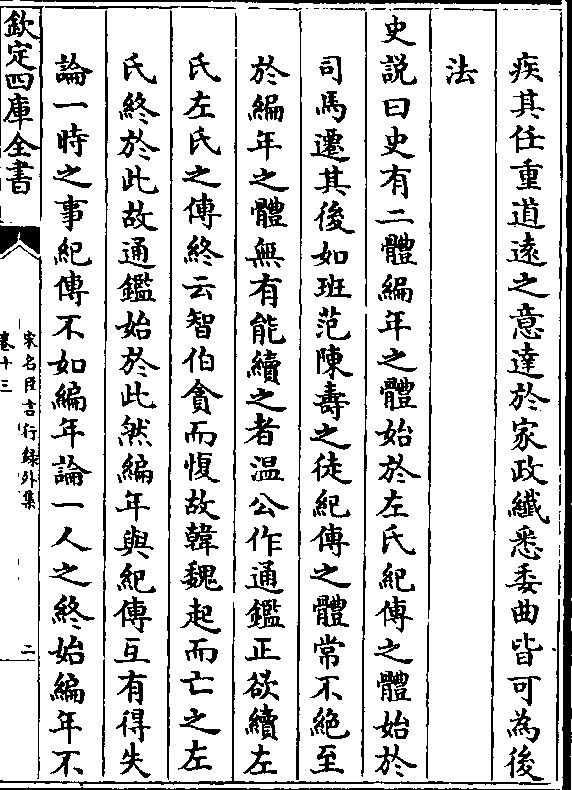 疾其任重道遠之意達於家政纖悉委曲皆可為後
法
史説曰史有二體編年之體始於左氏紀傳之體始於
司馬遷其後如班范陳壽之徒紀傳之體常不絶至
於編年之體無有能續之者温公作通鑑正欲續左
氏左氏之傳終云智伯貪而愎故韓魏起而亡之左
氏終於此故通鑑始於此然編年與紀傳互有得失
論一時之事紀傳不如編年論一人之終始編年不
欽定四庫全書
宋名臣言行録外集
卷十三
二